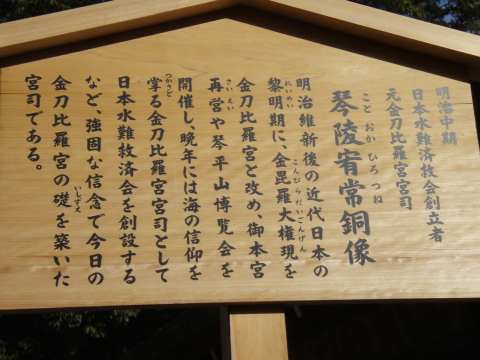 明治中期
日本水難済救会創立者
元金刀比羅宮宮司
琴陵宥常銅像
ことおかひろつね
明治維新後の近代日本の
黎明期に、金毘羅大権現を
れいめい
こんぴらだいごんげん
金刀比羅宮と改め、御本宮
再営や琴平山博覧会を
さいえい
開催し、晩年には海の信仰を
掌る金刀比羅宮宮司として
つかさど
日本水難救済会を創設する
など、強固な信念で今日の
金刀比羅宮の礎を築いた
いしずえ
宮司である。